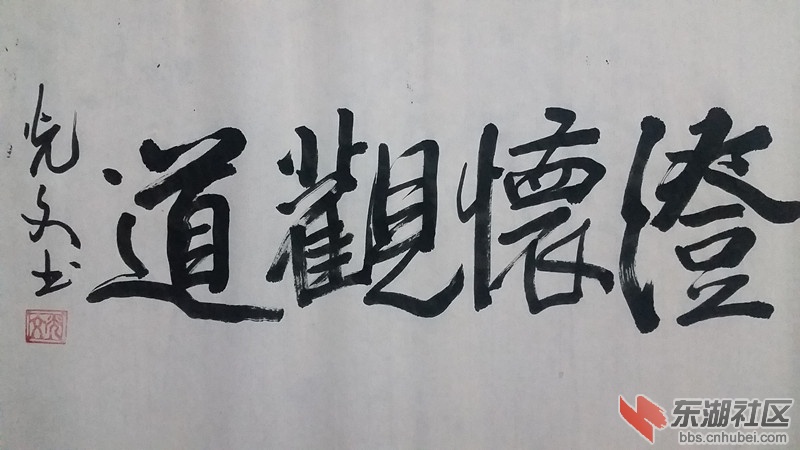 澄懷觀道
光文书
东湖社区
bbs.cnhubei.com